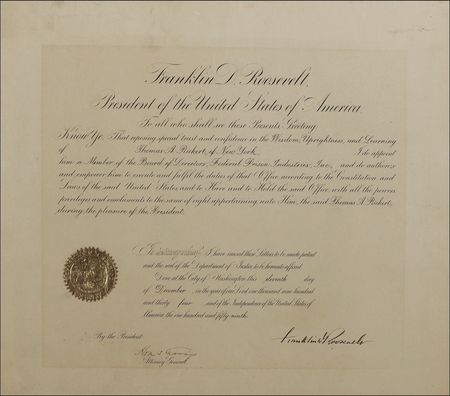 Franklin D. Roosevelt,
President of the United States of America.
To all who shall see these Presents, Greeting:
Know Ye, That reposing special trust and confidence in the Wisdom, Uprightness, and Learning
of Thomas A. Rickert, of New York I do appoint
him a Member of the Board of Directors, Federal Prison Industries, Inc., and do authorize
and empower him to execute and fulfil the duties of that Office according to the Constitution and
Laws of the said United States, and to Have and to Hold the said Office, with all the powers
privileges and emoluments to the same of right appertaining unto Him, the said Thomas A. Rickert,
during the pleasure of the President.
In testimony whereof I have caused these Letters to be made patent
and the seal of the Department of Justice to be hereunto affixed.
Done at the City of Washington this eleventh day
of December in the year of our Lord one thousand nine hundred
and thirty four and of the Independence of the United States of
America the one hundred and fifty ninth.
By the President:
Franklin D Roosevelt
Attorney General.